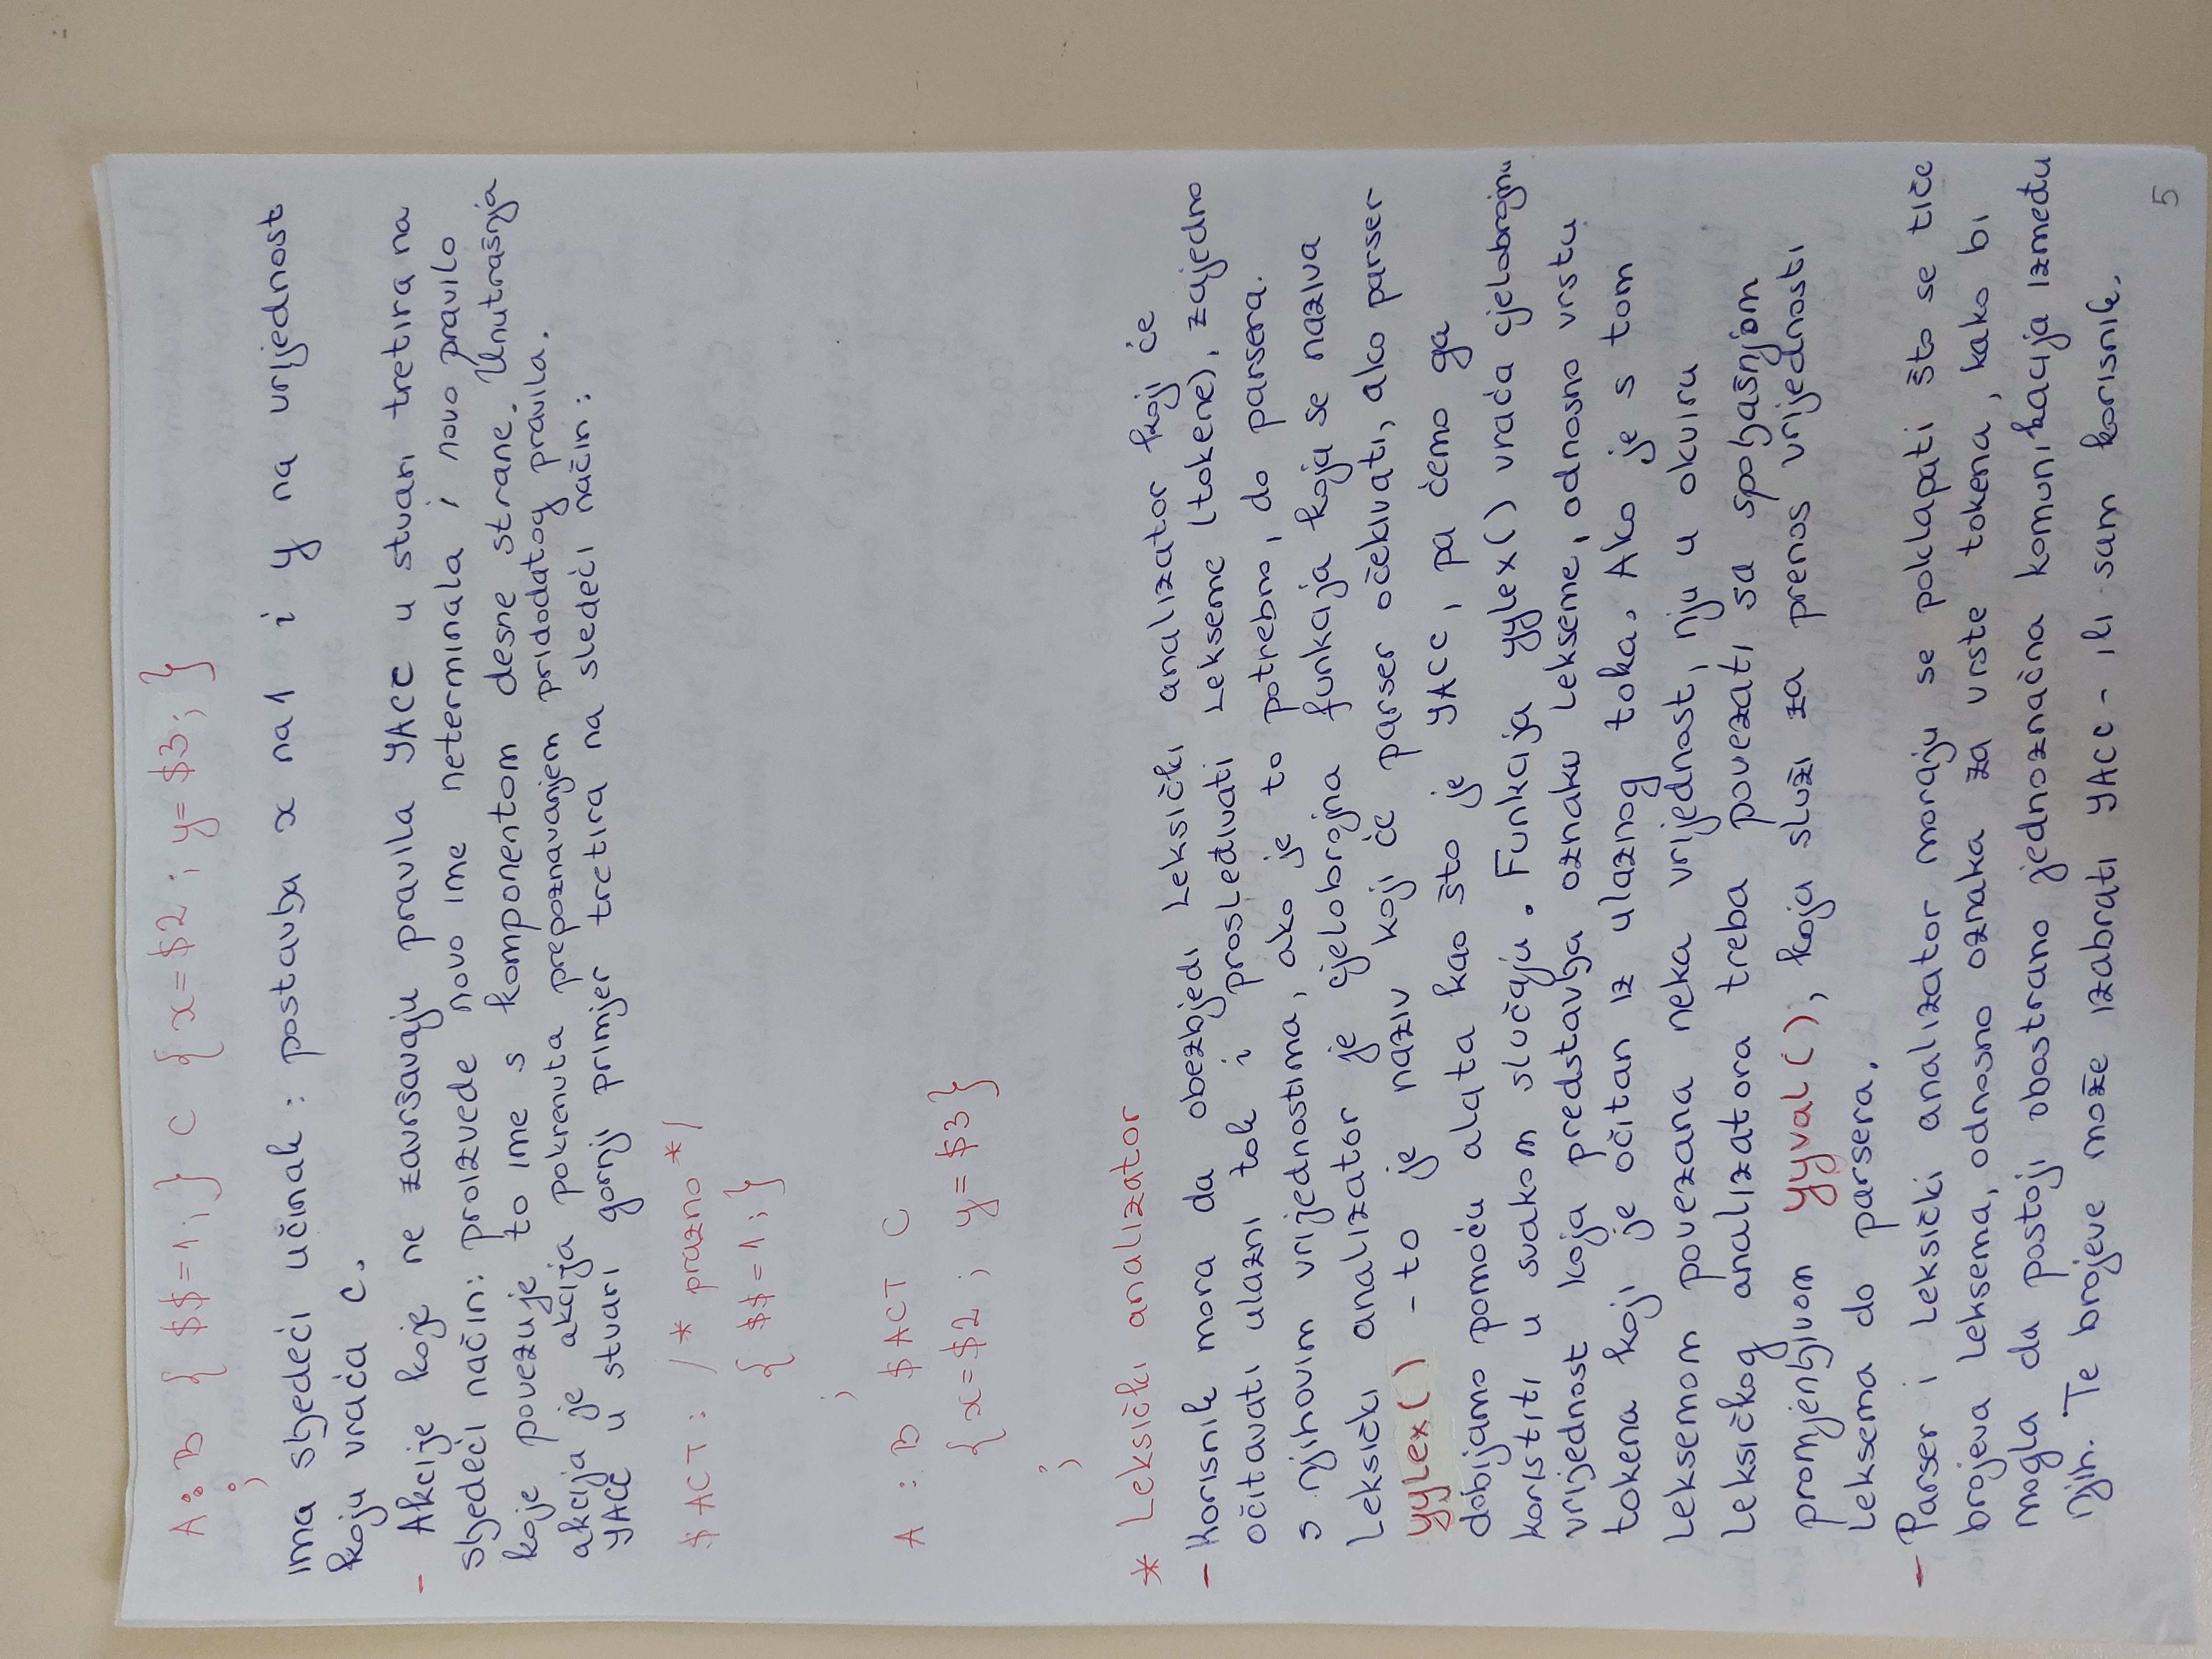 A : B { $$=1; } C { x=$2 ; y=$3; }
;
ima sljedeći učinak : postavlja x na 1 i y na vrijednost
koju vraća C.
- Akcije koje ne završavaju pravila YACC u stvari tretira na
sljedeći način: proizvede novo ime neterminala i novo pravilo
koje povezuje to ime s komponentom desne strane. Unutrašnja
akcija je akcija pokrenuta prepoznavanjem pridodatog pravila.
YACC u stvari gornji primjer tretira na sledeći način :
$ ACT : /* prazno */
{ $$=1 ; }
;
A : B $ ACT C
{ x=$2 ; y=$3 }
;
* Leksički analizator
- Korisnik mora da obezbjedi Leksički analizator koji će
očitavati ulazni tok i prosleđivati Lekseme (tokene), zajedno
s njihovim vrijednostima, ako je to potrebno, do parsera.
Leksički analizator je cjelobrojna funkcija koja se naziva
yylex() - to je naziv koji će parser očekivati, ako parser
dobijamo pomoću alata kao što je YACC, pa ćemo ga
koristiti u svakom slučaju. Funkcija yylex() vraća cjelobrojnu
vrijednost koja predstavlja oznaku Lekseme, odnosno vrstu
tokena koji je očitan iz ulaznog toka. Ako je s tom
Leksemom povezana neka vrijednost, nju u okviru
Leksičkog analizatora treba povezati sa spoljašnjom
promjenljivom yyval(), koja služi za prenos vrijednosti
Leksema do parsera.
- Parser i Leksički analizator moraju se poklapati što se tiče
brojeva Leksema, odnosno oznaka za vrste tokena, kako bi
mogla da postoji obostrano jednoznačna komunikacija između
njih. Te brojeve može izabrati YACC - ili sam korisnik.
5